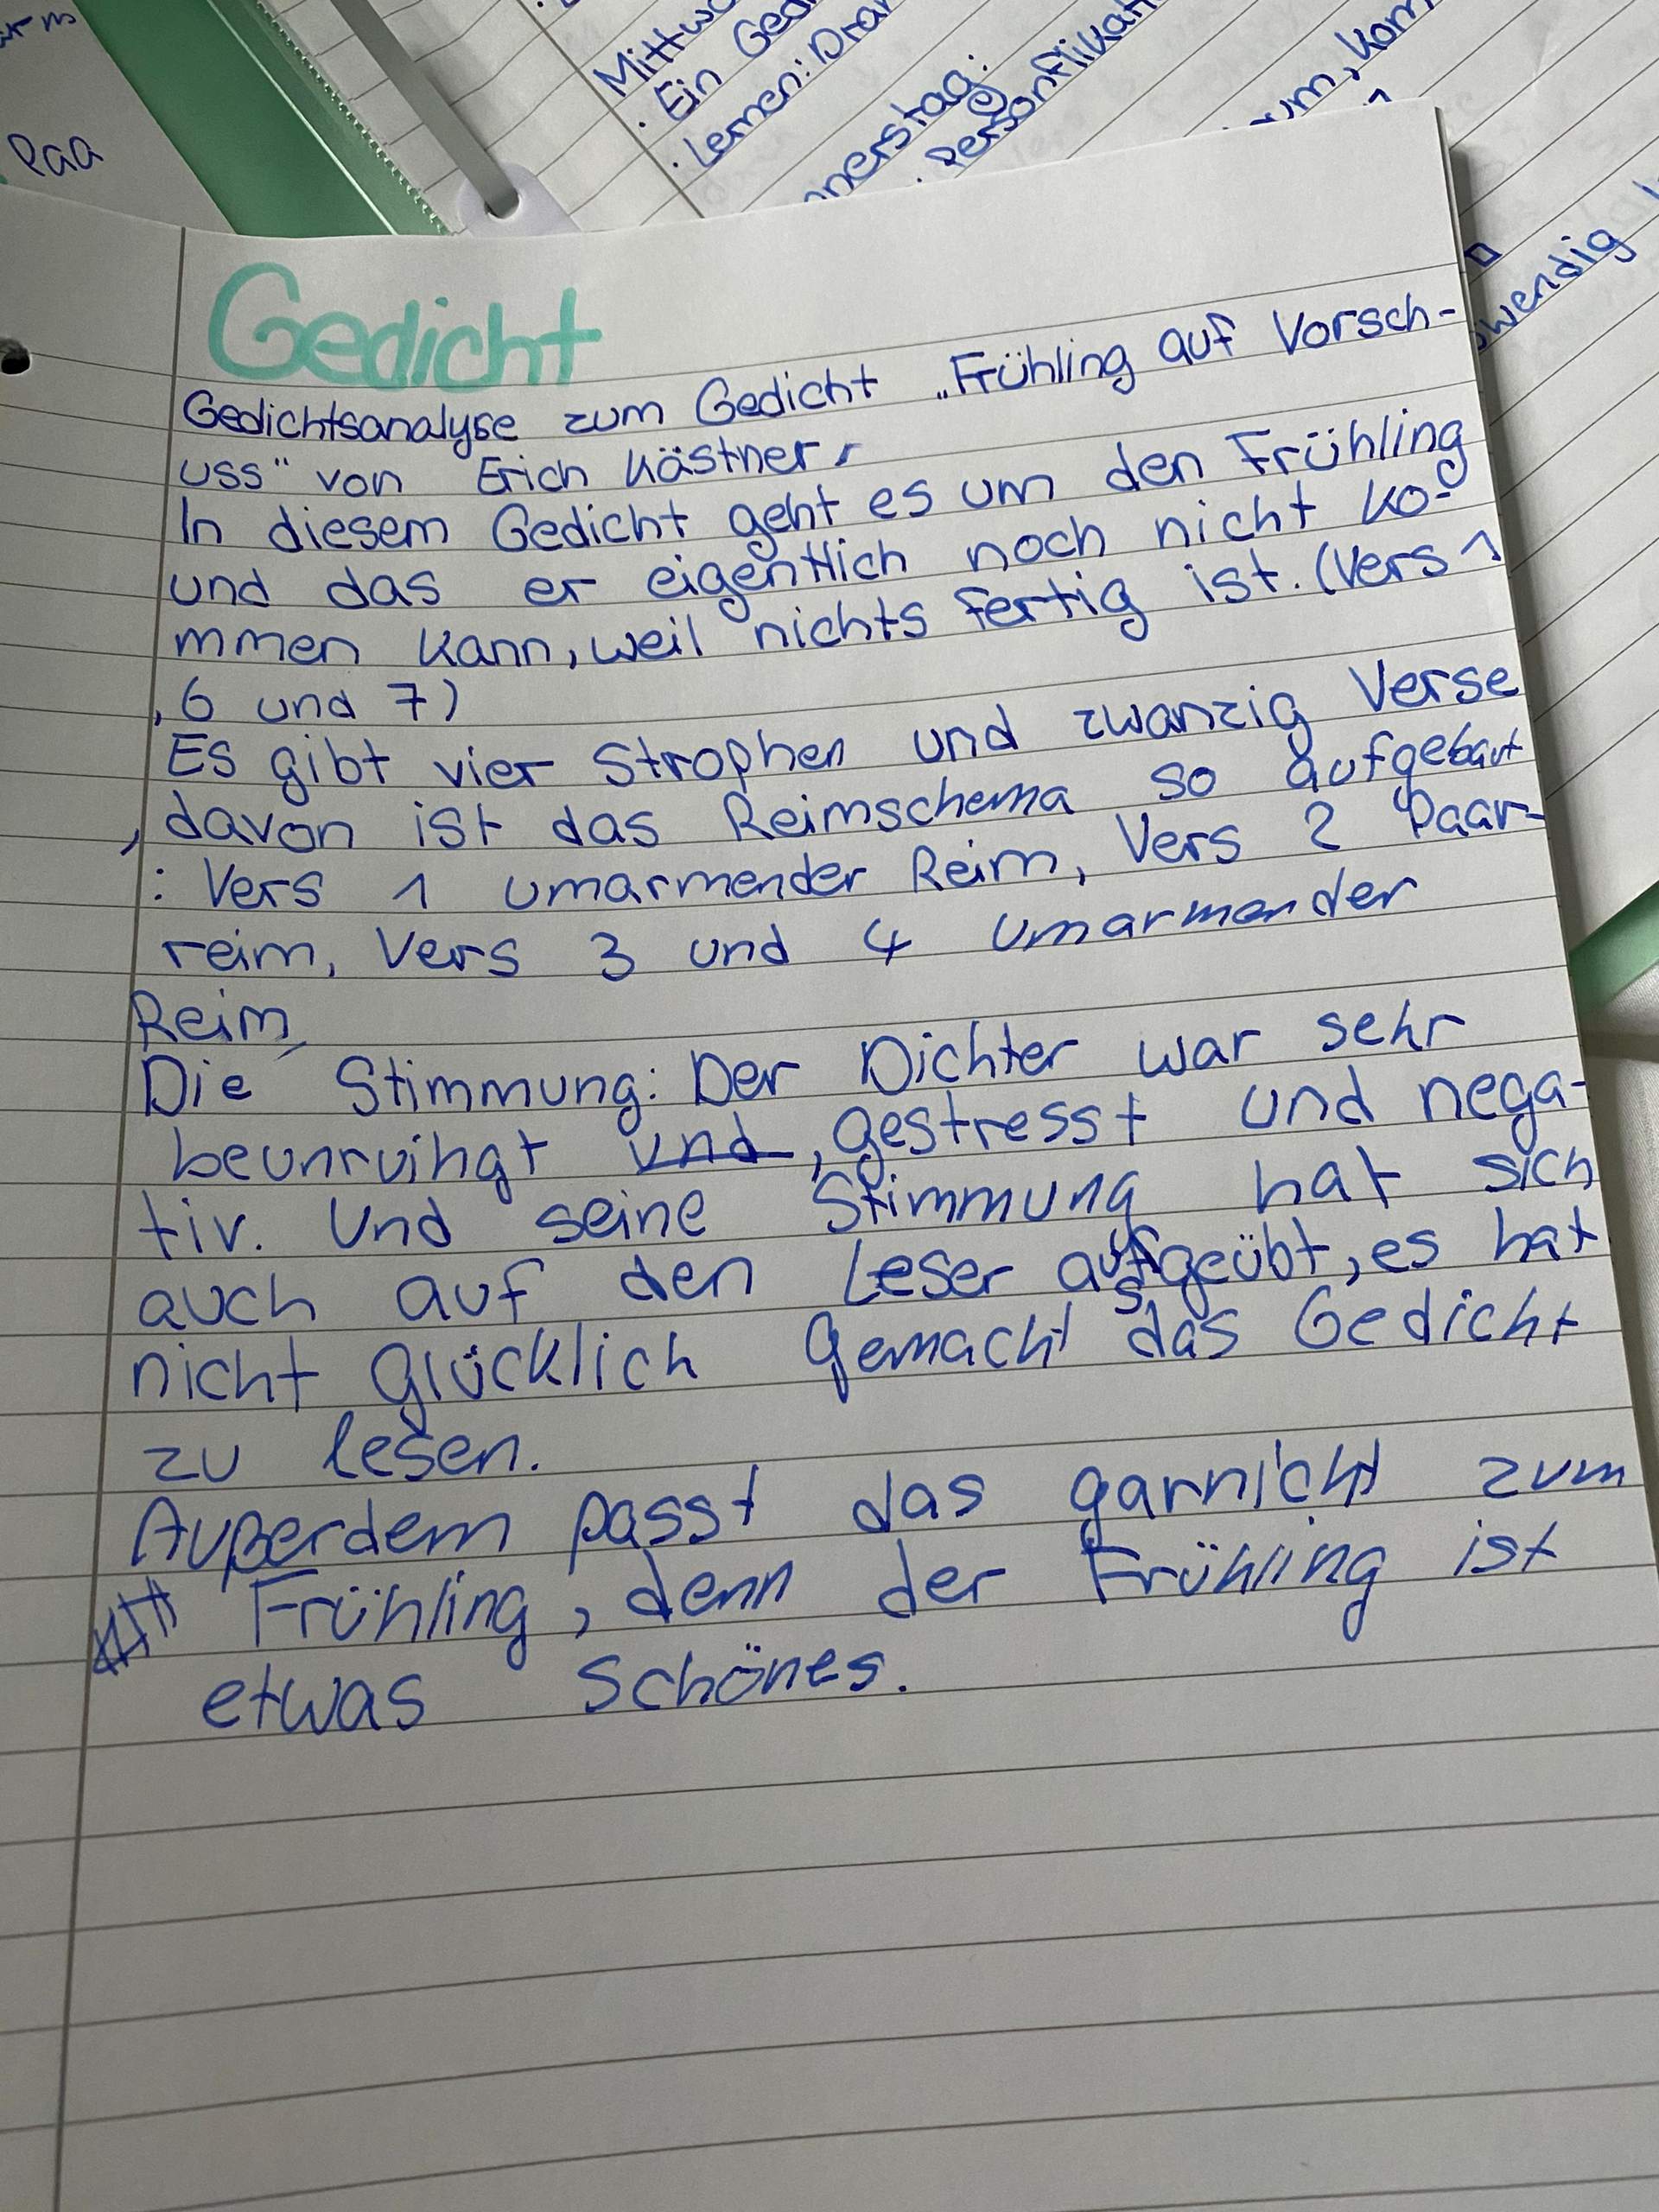 Paa
Ein
Lernen:
Gedicht
Gedichtsanalyse zum Gedicht „Frühling auf Vorsch-
uss" von Erich Kästner.
In diesem Gedicht geht es um den Frühling
und das er eigentlich noch nicht ko-
mmen kann, weil nichts fertig ist. (Vers 1
, 6 und 7)
Es gibt vier Strophen und zwanzig Verse
, davon ist das Reimschema so aufgebaut
: Vers 1 umarmender Reim, Vers 2 Paar-
reim, Vers 3 und 4 umarmender
Reim,
Die Stimmung: Der Dichter war sehr
beunruihgt und, gestresst und nega-
tiv. Und seine Stimmung hat sich
auch auf den Leser ausgeübt, es hat
nicht glücklich gemacht das Gedicht
zu lesen.
Außerdem passt das garnicht zum
Frühling, denn der Frühling ist
etwas schönes.